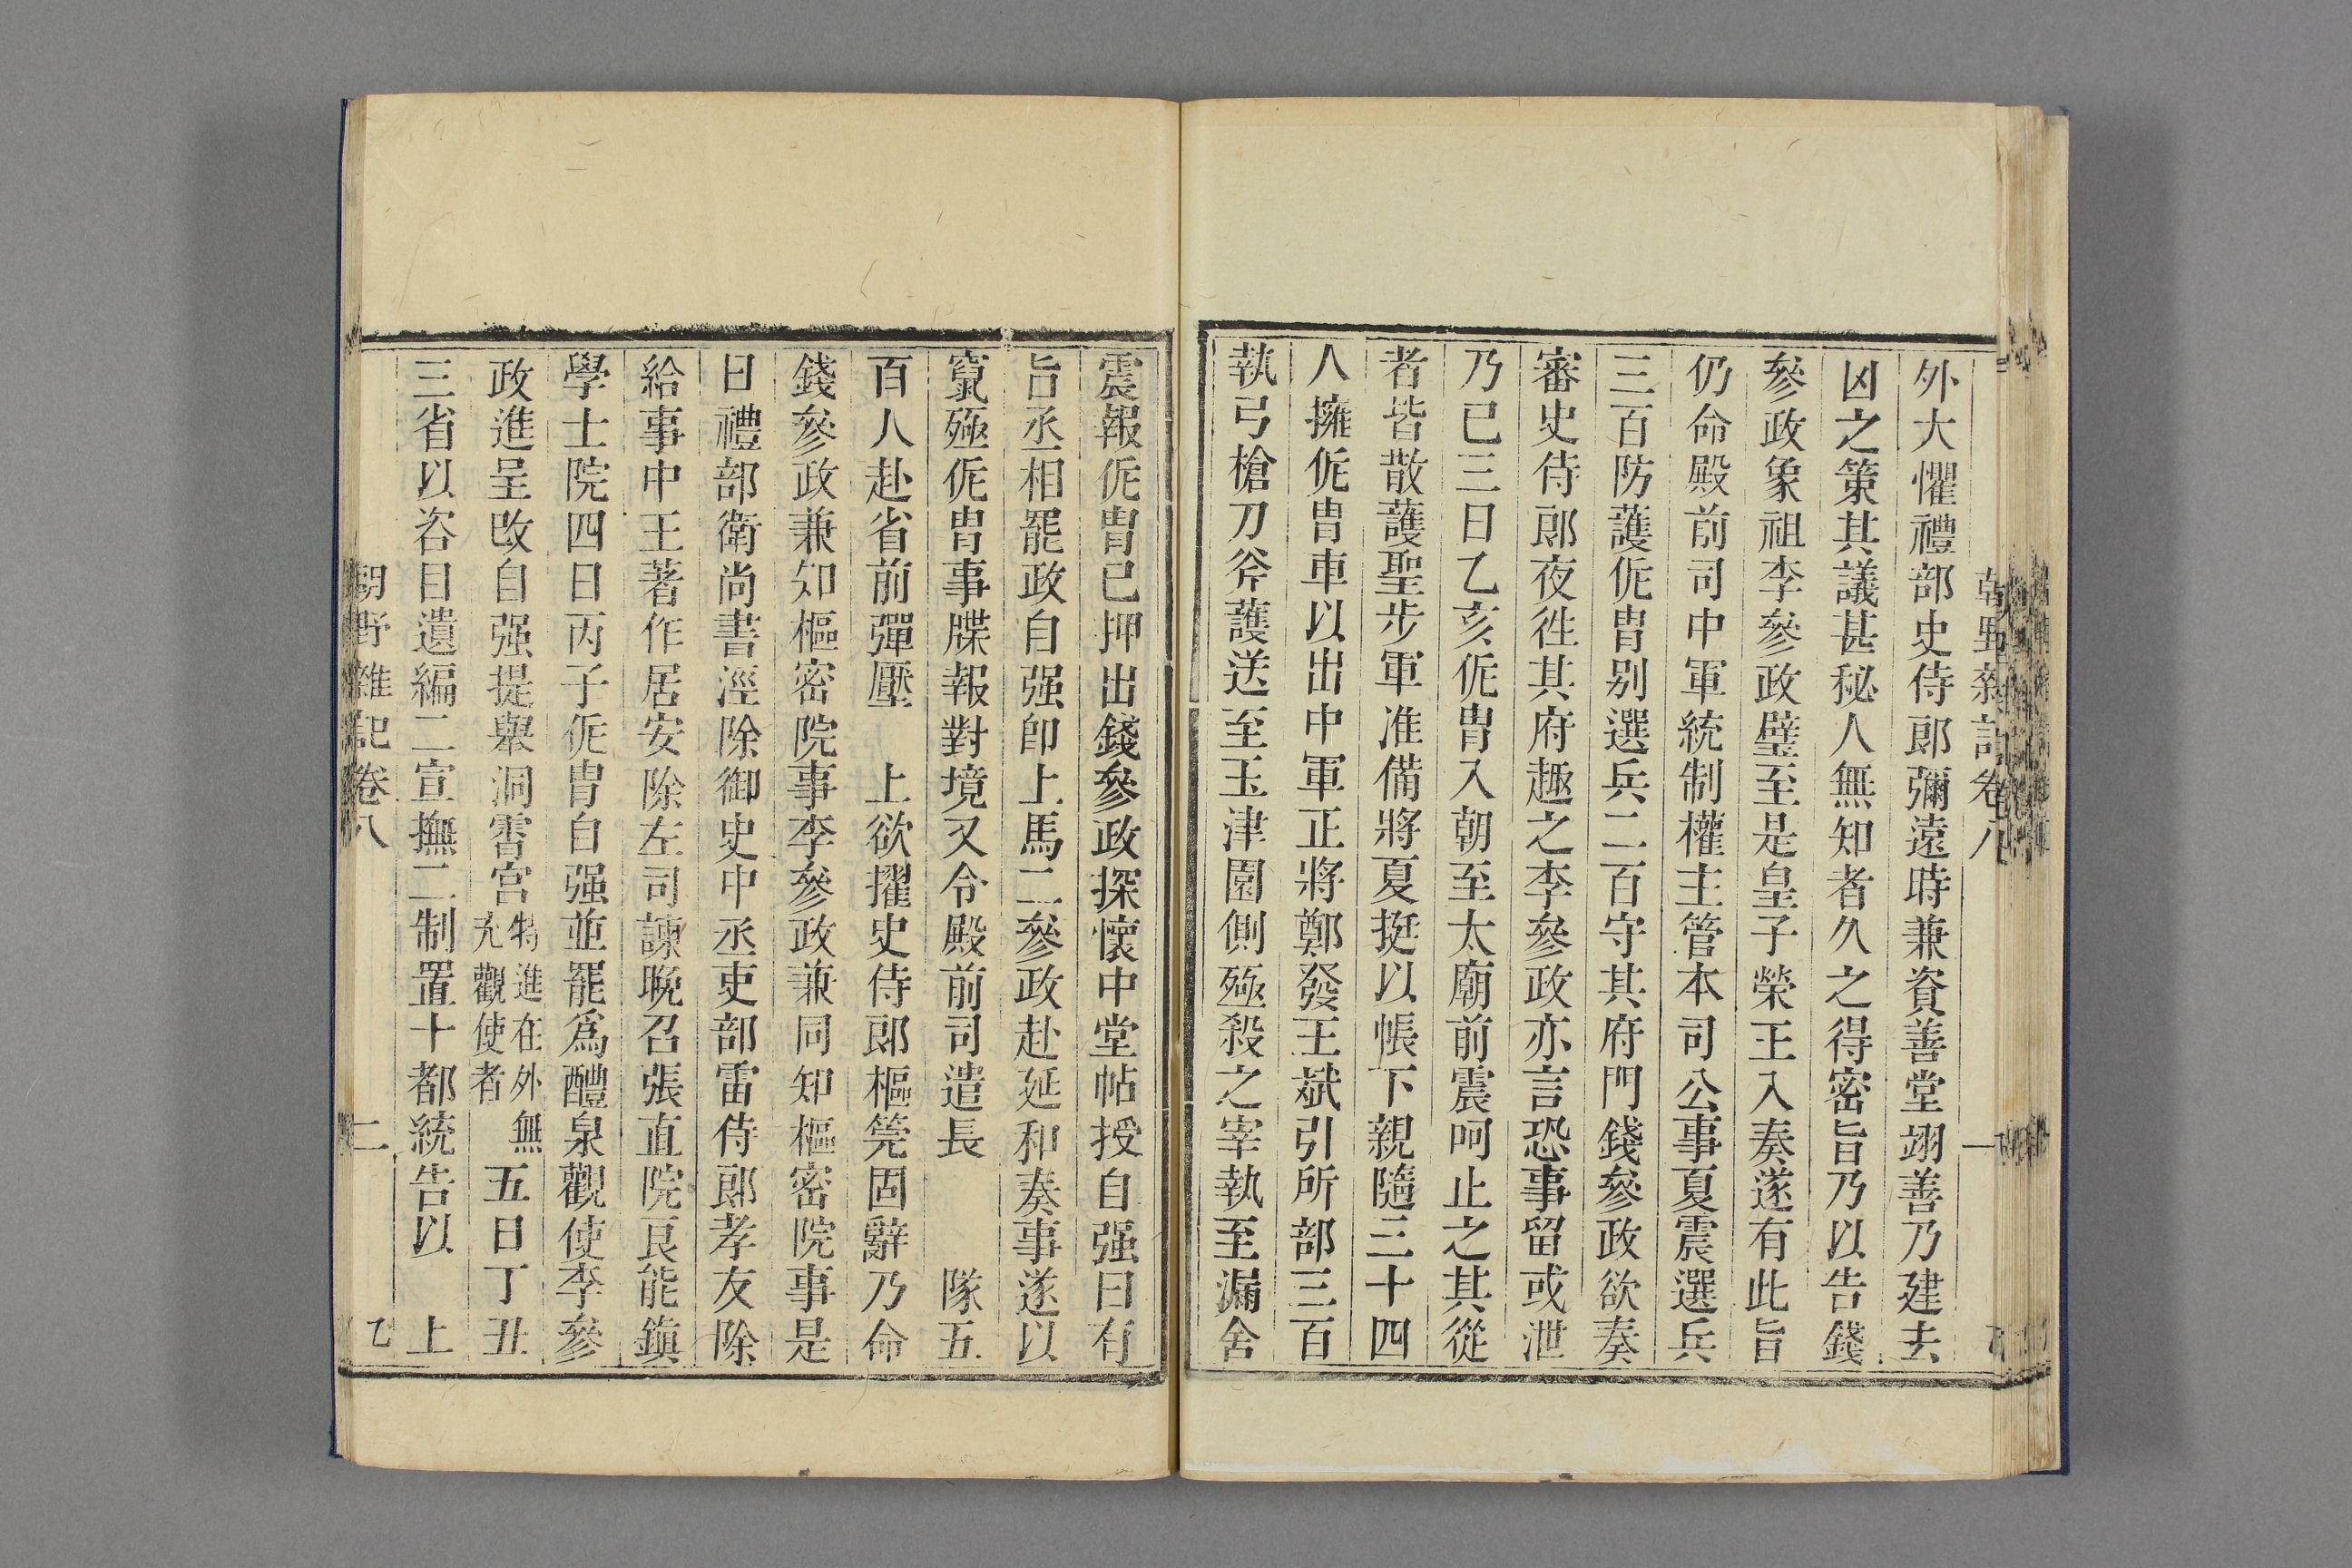 外大懼禮部史侍郎彌遠時兼資善堂翊善乃建去
凶之策其議甚秘人無知者久之得密旨乃以告錢
參政象祖李參政壁至是皇子榮王入奏遂有此旨
仍命殿前司中軍統制權主管本司公事夏震選兵
三百防護侂胄别選兵二百守其府門錢參政欲奏
審史侍郎夜徃其府趣之李參政亦言恐事留或泄
乃已三日乙亥侂胄入朝至太廟前震呵止之其從
者皆散護聖步軍准備將夏挺以帳下親隨三十四
人擁侂胄車以出中軍正將鄭發王斌引所部三百
執弓槍刀斧護送至玉津園側殛殺之宰執至漏舍
震報侂胄已押出錢參政探懷中堂帖授自强曰有
旨丞相罷政自强卽上馬二參政赴延和奏事遂以
竄殛侂胄事牒報對境又令殿前司遣長　　隊五
百人赴省前彈壓　上欲擢史侍郎樞筦固辭乃命
錢參政兼知樞密院事李參政兼同知樞密院事是
日禮部衛尚書涇除御史中丞吏部雷侍郎孝友除
給事中王著作居安除左司諫晚召張直院良能鎮
學士院四日丙子侂胄自强並罷爲醴泉觀使李參
政進呈改自强提舉洞霄宮特進在外無充觀使者五日丁丑
三省以咨目遺編二宣撫二制置十都統告以　上
朝野雜記卷八　二　乙